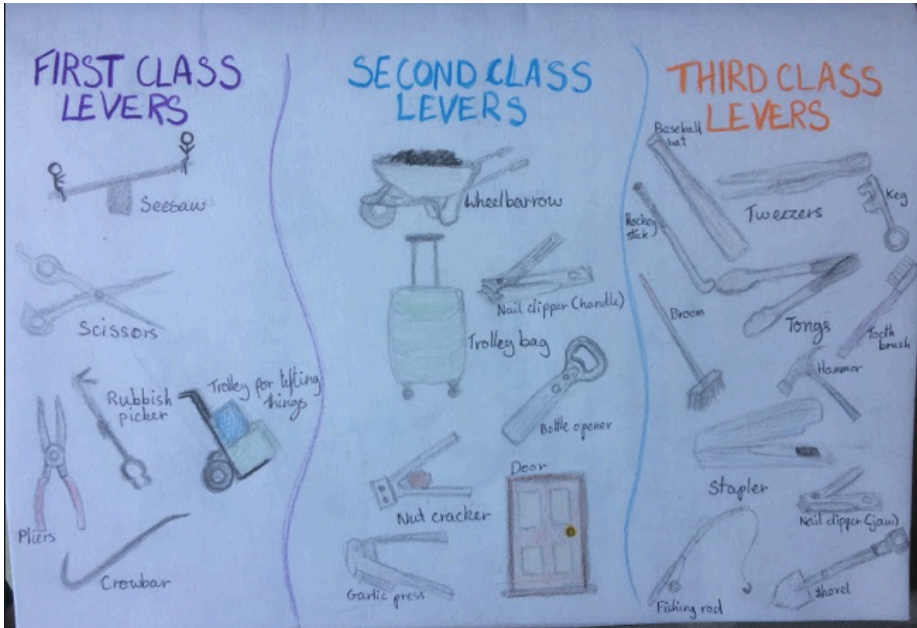 FIRST CLASS
LEVERS
Seesaw
Scissors
Rubbish
picker
Trolley for lifting
things
Pliers
Crowbar
SECOND CLASS
LEVERS
Wheelbarrow
Nail clipper (handle)
Trolley bag
Bottle opener
Nut cracker
Door
Garlic press
THIRD CLASS
LEVERS
Baseball
bat
Tweezers
Key
Hockey
stick
Broom
Tongs
Tooth
brush
Hammer
Stapler
Nail clipper (jaw)
Fishing rod
Shovel